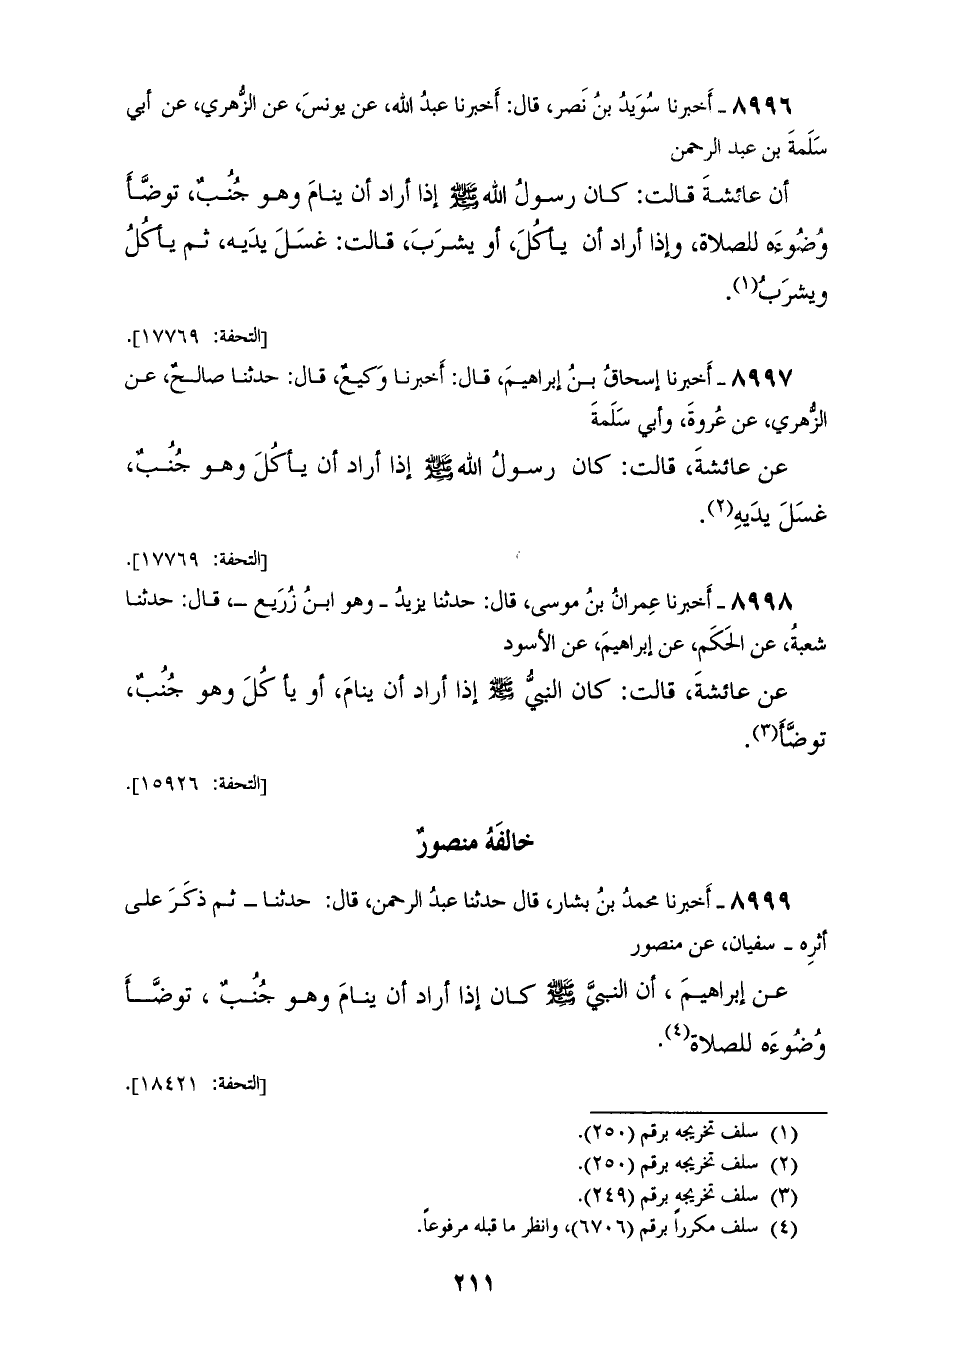 ٨٩٩٦ ـ أَخبرنا سُوَيدُ بنُ نَصر، قال: أَخبرنا عبدُ الله، عن يونسَ، عن الزُّهري، عن أبي
سَلَمةَ بن عبد الرحمن
أن عائشةَ قالت: كان رسولُ الله ﷺ إذا أراد أن ينامَ وهو جُنُبٌ، توضَّأَ
وُضُوءَه للصلاة، وإذا أراد أن يأكُلَ، أو يشرَبَ، قالت: غسَلَ يدَيه، ثم يأكُلُ
ويشرَبُ(١).
[التحفة: ١٧٧٦٩].
٨٩٩٧ ـ أَخبرنا إسحاقُ بنُ إبراهيمَ، قال: أَخبرنا وَكيعٌ، قال: حدثنا صالحٌ، عن
الزُّهري، عن عُروةَ، وأبي سلَمةَ
عن عائشةَ، قالت: كان رسولُ الله ﷺ إذا أراد أن يأكُلَ وهو جُنُبٌ،
غسَلَ يدَيهِ(٢).
[التحفة: ١٧٧٦٩].
٨٩٩٨ ـ أَخبرنا عِمرانُ بنُ موسى، قال: حدثنا يزيدُ ـ وهو ابنُ زُرَيع ـ، قال: حدثنا
شعبةُ، عن الحَكَم، عن إبراهيمَ، عن الأسود
عن عائشةَ، قالت: كان النبيُّ ﷺ إذا أراد أن ينامَ، أو يأكُلَ وهو جُنُبٌ،
توضَّأَ(٣).
[التحفة: ١٥٩٢٦].
خالفَهُ منصورٌ
٨٩٩٩ ـ أَخبرنا محمدُ بنُ بشار، قال حدثنا عبدُ الرحمن، قال: حدثنا ـ ثم ذكَرَ على
أثرِه ـ سفيان، عن منصور
عن إبراهيمَ، أن النبيَّ ﷺ كان إذا أراد أن ينامَ وهو جُنُبٌ، توضَّأَ
وُضُوءَه للصلاة(٤).
[التحفة: ١٨٤٢١].
(١) سلف تخريجه برقم (٢٥٠).
(٢) سلف تخريجه برقم (٢٥٠).
(٣) سلف تخريجه برقم (٢٤٩).
(٤) سلف مكرراً برقم (٦٧٠٦)، وانظر ما قبله مرفوعاً.
٢١١